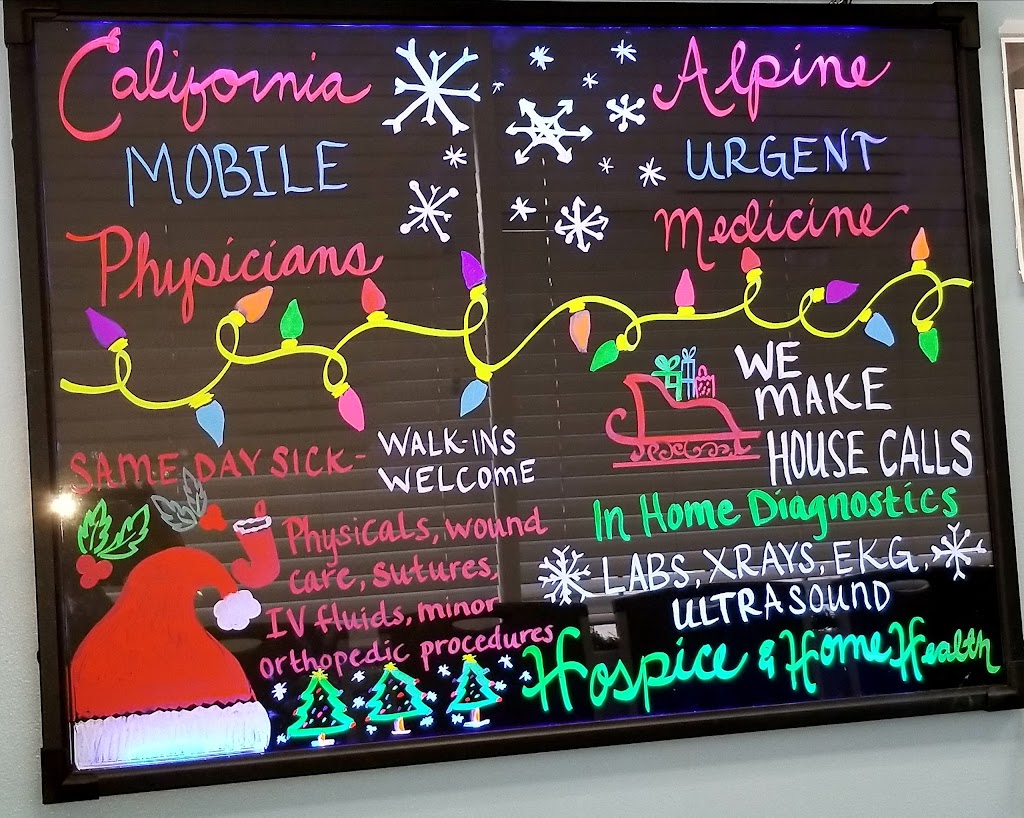 California
MOBILE
Physicians
Alpine
URGENT
Medicine
SAME DAY SICK-
WALK-INS
WELCOME
Physicals, wound
care, sutures,
IV fluids, minor
orthopedic procedures
WE
MAKE
HOUSE CALLS
In Home Diagnostics
LABS, XRAYS, EKG,
ULTRASOUND
Hospice & Home Health